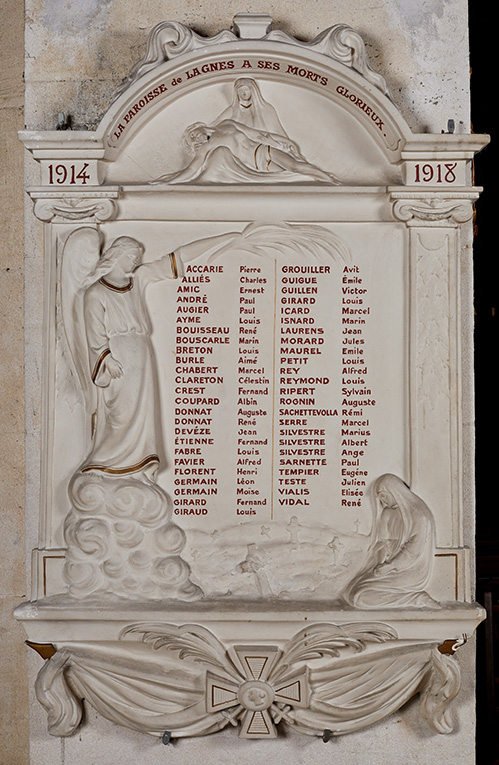 LA PAROISSE de LAGNES A SES MORTS GLORIEUX.
1914 1918
ACCARIE Pierre
ALLIÉS Charles
AMIC Ernest
ANDRÉ Paul
AUGIER Paul
AYME Louis
BOUISSEAU René
BOUSCARLE Marin
BRETON Louis
BURLE Aimé
CHABERT Marcel
CLARETON Célestin
CREST Fernand
COUPARD Albin
DONNAT Auguste
DONNAT René
DEVÉZE Jean
ÉTIENNE Fernand
FABRE Louis
FAVIER Alfred
FLORENT Henri
GERMAIN Léon
GERMAIN Moïse
GIRARD Fernand
GIRAUD Louis
GROUILLER Avit
GUIGUE Émile
GUILLEN Victor
GIRARD Louis
ICARD Marcel
ISNARD Marin
LAURENS Jean
MORARD Jules
MAUREL Emile
PETIT Louis
REY Alfred
REYMOND Louis
RIPERT Sylvain
ROGNIN Auguste
SACHETTEVOLLA Rémi
SERRE Marcel
SILVESTRE Marius
SILVESTRE Albert
SILVESTRE Ange
SARNETTE Paul
TEMPIER Eugène
TESTE Julien
VIALIS Elisée
VIDAL René